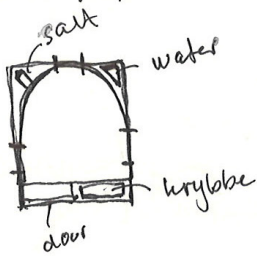 salt
water
krybbe
door